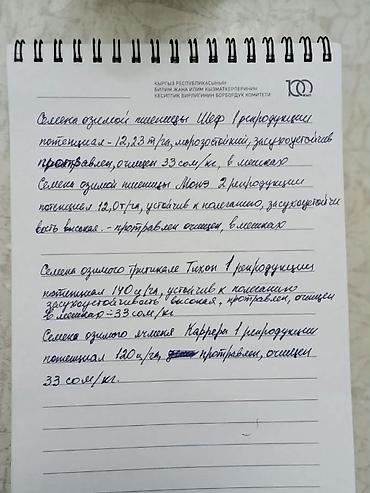 КЫРГЫЗ РЕСПУБЛИКАСЫНЫН
БИЛИМ ЖАНА ИЛИМ КЫЗМАТКЕРЛЕРИНИН
КЕСИПТИК БИРЛИГИНИН БОРБОРДУК КОМИТЕТИ
100
Семена озимой пшеницы Шеф 1 репродукции
потенциал - 12,23 т/га, морозостойкий, засухоустойчив
протравлен, очищен 33 сом/кг, в мешках
Семена озимой пшеницы Монэ 2 репродукции
потенциал 12,0 т/га, устойчив к полеганию, засухоустойчи
вость высокая. - протравлен очищен, в мешках
Семена озимого тритикале Тихон 1 репродукции
потенциал 140 ц/га, устойчив к полеганию
засухоустойчивость высокая, протравлен, очищен
в мешках - 33 сом/кг
Семена озимого ячменя Каррера 1 репродукции
потенциал 120 ц/га, протравлен, очищен
33 сом/кг.